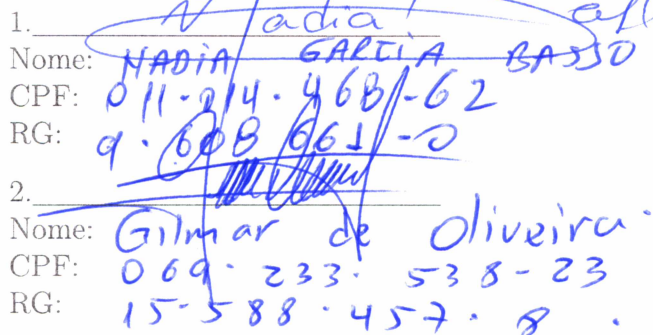 1. Nadia
Nome: NADIA GARCIA BASSO
CPF: 011-214-468-62
RG: 9.608 661-0
2.
Nome: Gilmar de Oliveira.
CPF: 069. 233. 538-23
RG: 15-588.457.8.